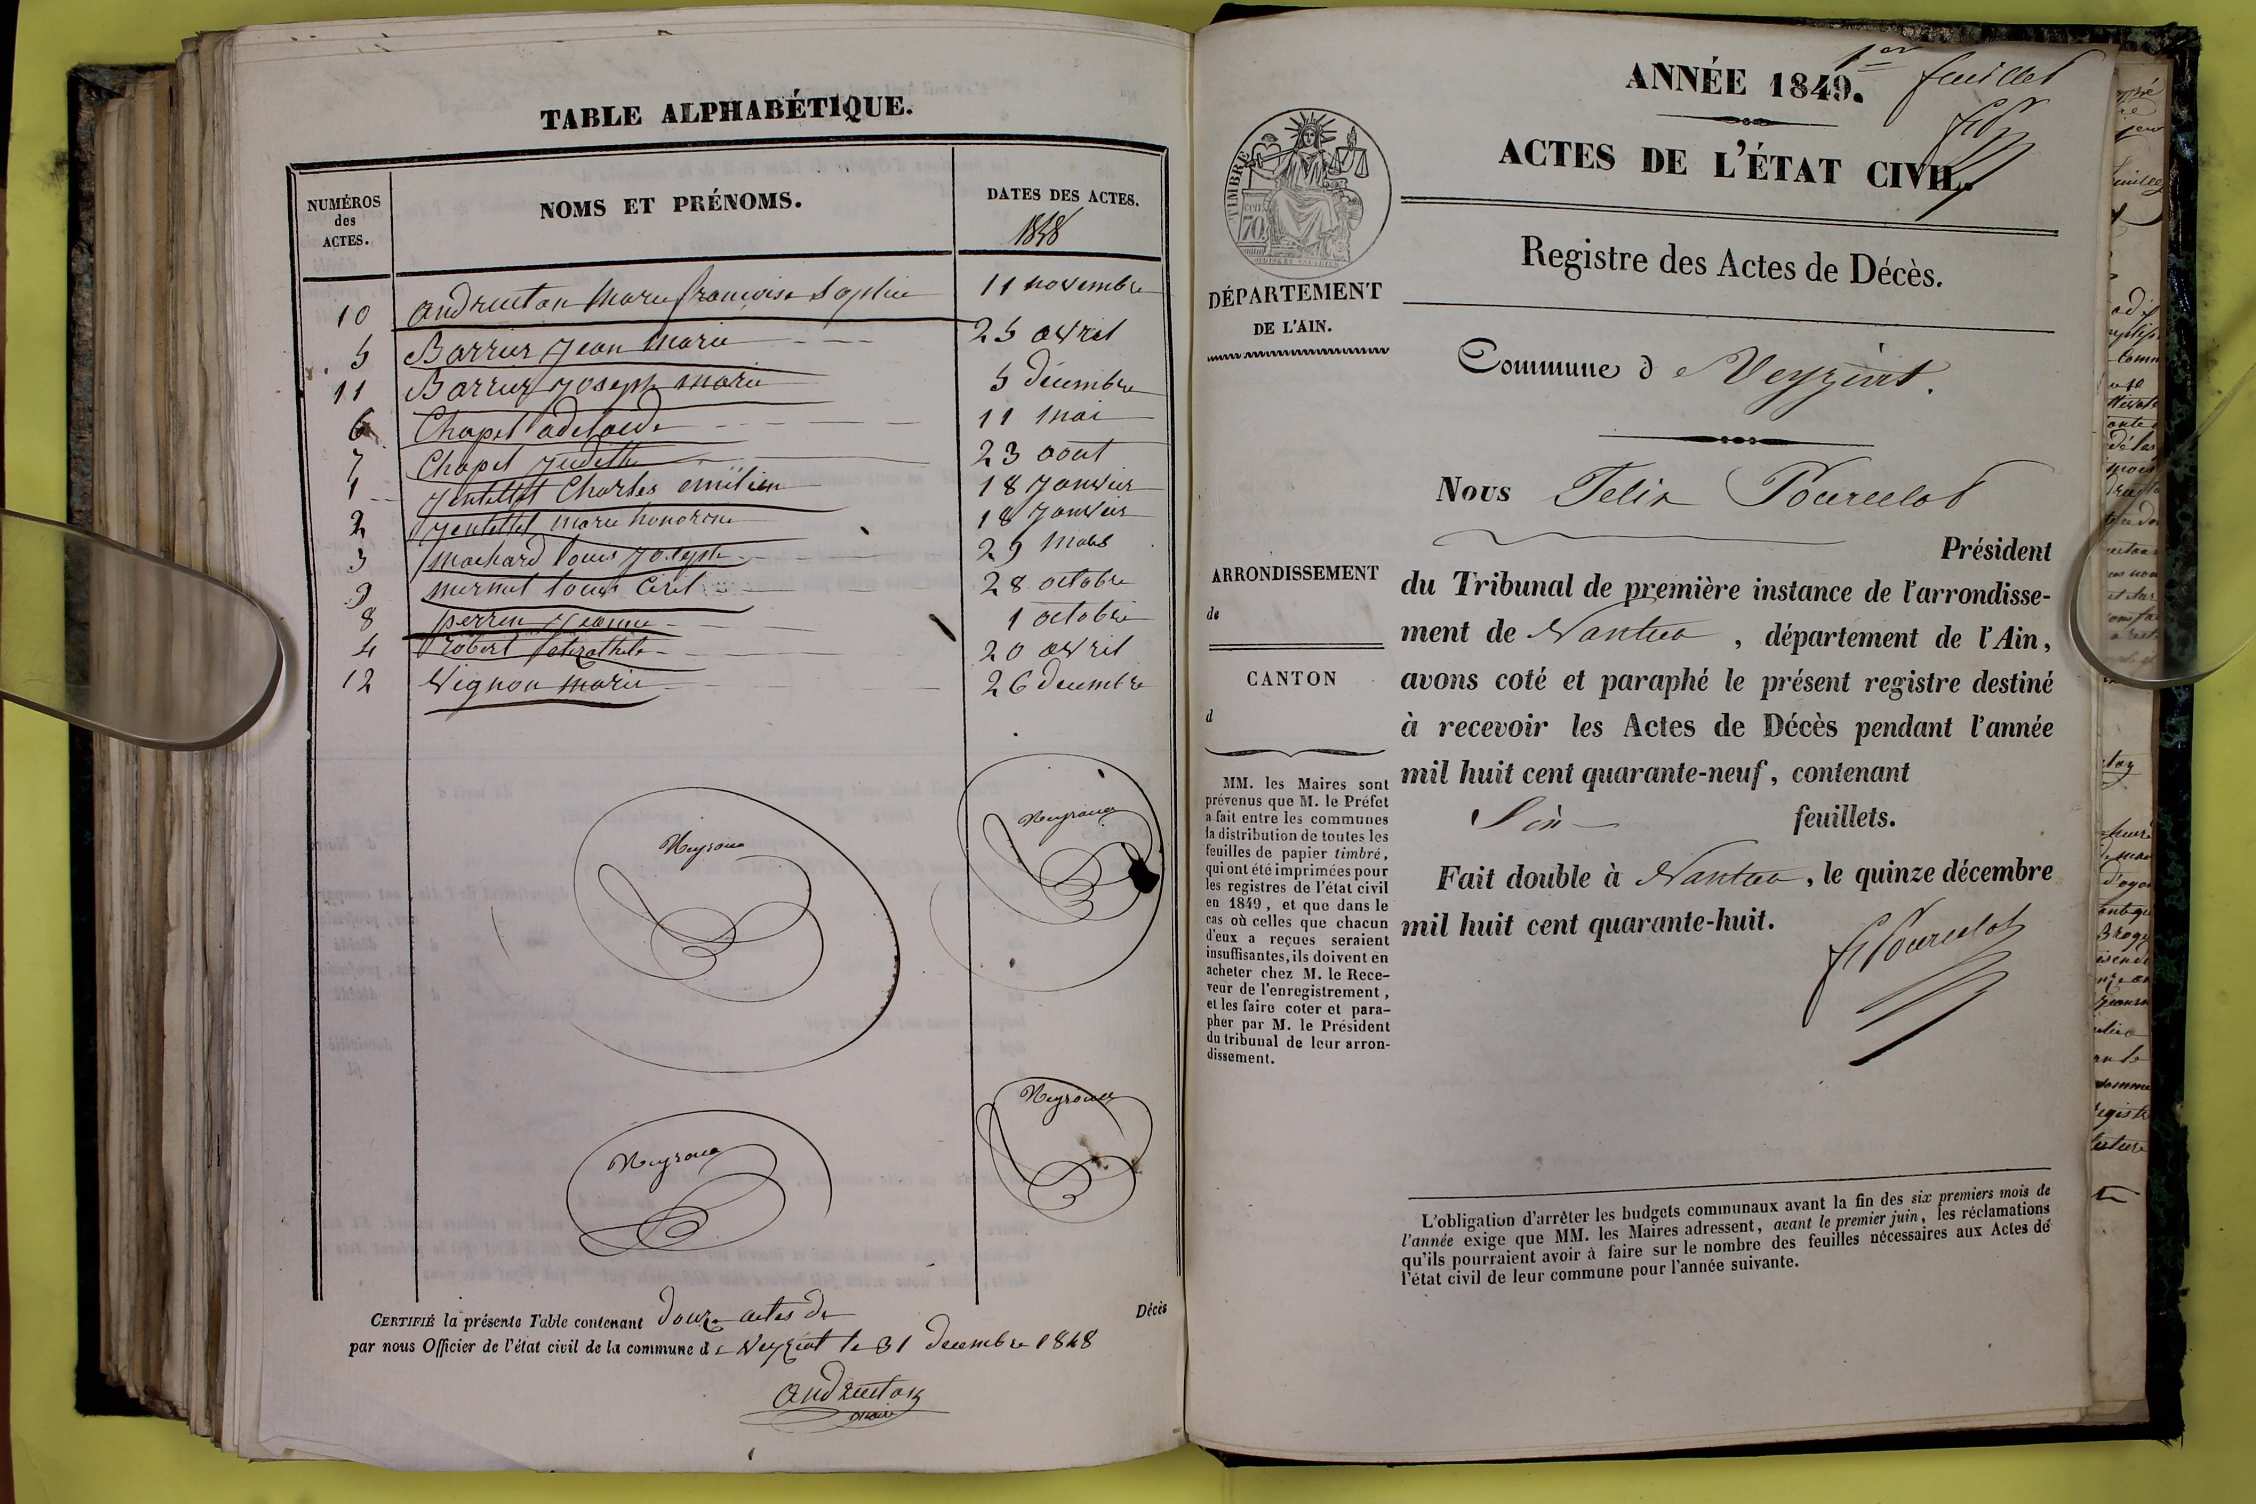 TABLE ALPHABÉTIQUE.
NUMÉROS des ACTES.
NOMS ET PRÉNOMS.
DATES DES ACTES.
1848
10 andruetan marie françoise Sophie 11 novembre
5 Barrier Jean marie 25 avril
11 Barrier Joseph marie 5 décembre
6 Chapel adelaede 11 mai
7 Chapel Judith 23 aout
1 Jentellet Charles emilien 18 Janvier
2 Jentellet marie honorine 18 Janvier
3 machard Louis Joseph 29 mars
9 mermet Louis 28 octobre
8 perrin Jeanne 1 octobre
4 Robert 20 avril
12 Vignon marie 26 decembre
Neyroud
Neyroud
Neyroud
Neyroud
CERTIFIÉ la présente Table contenant douze actes de Décès
par nous Officier de l'état civil de la commune de Veyziat le 31 decembre 1848
andruetan
maire
1er feuillet
ANNÉE 1849.
ACTES DE L'ÉTAT CIVIL.
TIMBRE
70
Registre des Actes de Décès.
DÉPARTEMENT
DE L'AIN.
Commune de Veyziat.
Nous Felix Pourcelot
Président
ARRONDISSEMENT
de
CANTON
d
du Tribunal de première instance de l'arrondisse-
ment de Nantua, département de l'Ain,
avons coté et paraphé le présent registre destiné
à recevoir les Actes de Décès pendant l'année
mil huit cent quarante-neuf, contenant
Six feuillets.
Fait double à Nantua, le quinze décembre
mil huit cent quarante-huit.
f Pourcelot
MM. les Maires sont
prévenus que M. le Préfet
a fait entre les communes
la distribution de toutes les
feuilles de papier timbré,
qui ont été imprimées pour
les registres de l'état civil
en 1849, et que dans le
cas où celles que chacun
d'eux a reçues seraient
insuffisantes, ils doivent en
acheter chez M. le Rece-
veur de l'enregistrement,
et les faire coter et para-
pher par M. le Président
du tribunal de leur arron-
dissement.
L'obligation d'arrêter les budgets communaux avant la fin des six premiers mois de
l'année exige que MM. les Maires adressent, avant le premier juin, les réclamations
qu'ils pourraient avoir à faire sur le nombre des feuilles nécessaires aux Actes de
l'état civil de leur commune pour l'année suivante.